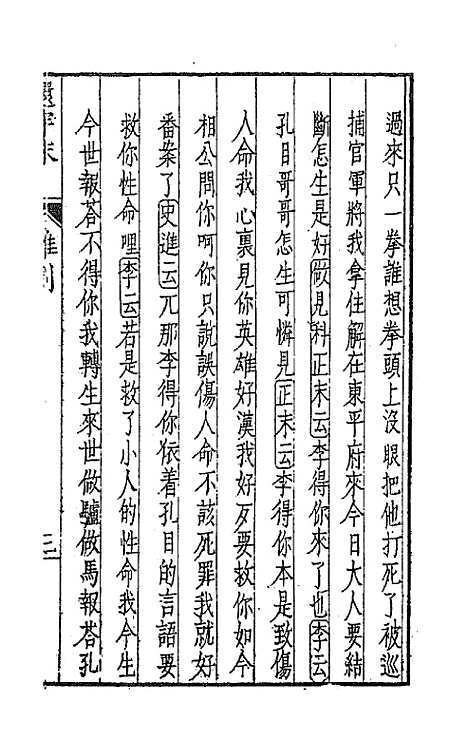 過來只一拳誰想拳頭上沒眼把他打死了被巡
捕官軍將我拿住解在東平府來今日大人要結
斷怎生是好做見科正末云李得你來了也李云
孔目哥哥怎生可憐見正末云李得你本是致傷
人命我心裏見你英雄好漢我好歹要救你如今
相公問你呵你只說誤傷人命不該死罪我就好
番案了史進云兀那李得你依着孔目的言語要
救你性命哩李云若是救了小人的性命我今生
今世報荅不得你我轉生來世做驢做馬報荅孔
還牢末
雜劇
三